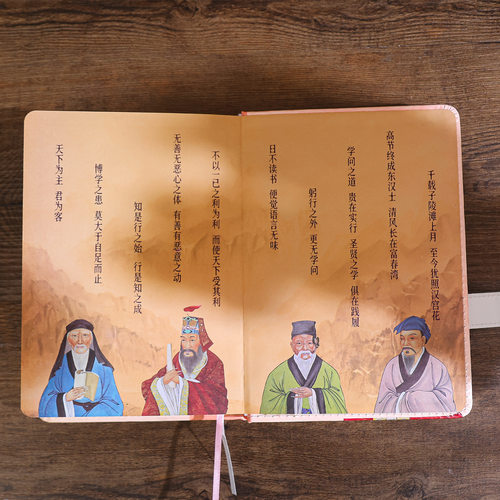 千载子陵滩上月 至今犹照汉宫花
高节终成东汉士 清风长在富春湾
学问之道 贵在实行 圣贤之学 俱在践履
躬行之外 更无学问
日不读书 便觉语言无味
不以一己之利为利 而使天下受其利
无善无恶心之体 有善有恶意之动
知是行之始 行是知之成
博学之患 莫大于自足而止
天下为主 君为客